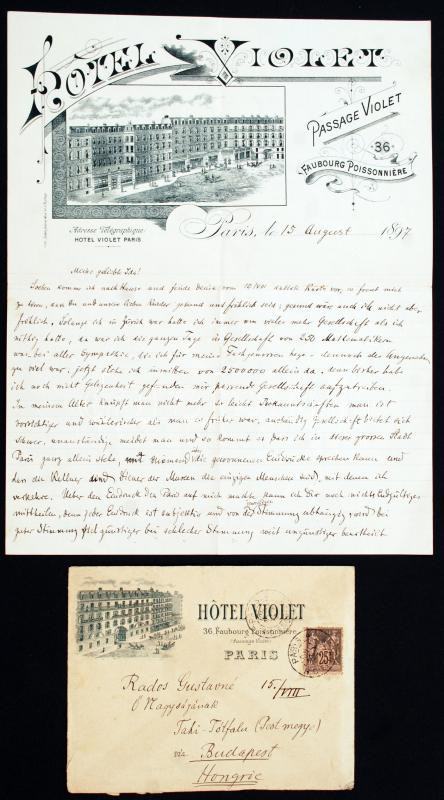 HOTEL VIOLET
PASSAGE VIOLET
36
FAUBOURG POISSONNIÈRE
Adresse Télégraphique
HOTEL VIOLET PARIS
Paris, le 15 August 1897
Meine geliebte Ida!
Soeben komme ich nach Hause und finde Deine vom 10/VIII datirte Karte vor, es freut mich
zu hören, dass Du und unsere lieben Kinder gesund und fröhlich seid; gesund wäre auch ich nicht aber
fröhlich. Solange ich in Zürich war hatte ich immer um vieles mehr Gesellschaft als ich
nöthig hatte, da war ich die ganzen Tage in Gesellschaft von 250 Mathematikern
war, bei aller Sympathie, die ich für meine Fachgenossen hege - dennoch des Angenehmen
zu viel war; jetzt stehe ich inmitten von 2500000 allein da, denn bisher habe
ich noch nicht Gelegenheit gefunden mir passende Gesellschaft aufzutreiben.
In meinem Alter knüpft man nicht mehr so leicht Bekanntschaften man ist
vorsichtiger und wählerischer als man es früher war, anständige Gesellschaft bietet sich
schwer, unanständige meidet man und so kommt es dass ich in dieser grossen Stadt
Paris ganz allein stehe, mit niemand über die gewonnenen Eindrücke sprechen kann und
dass die Kellner und Diener der Museen die einzigen Menschen sind, mit denen ich
verkehre. Ueber den Eindruck den Paris auf mich machte, kann ich Dir noch nichts Endgültiges
mittheilen, denn jeder Eindruck ist subjectiv und von der Stimmung abhängig, wird bei
guter Stimmung günstiger bei schlechter Stimmung weit ungünstiger beurtheilt
HÔTEL VIOLET
36, Faubourg Poissonnière
(Passage Violet)
PARIS
PARIS
25
Rados Gustavné 15./VIII
Ő Nagyságának
Tahi-Tótfalu (Pest megye)
via Budapest
Hongrie